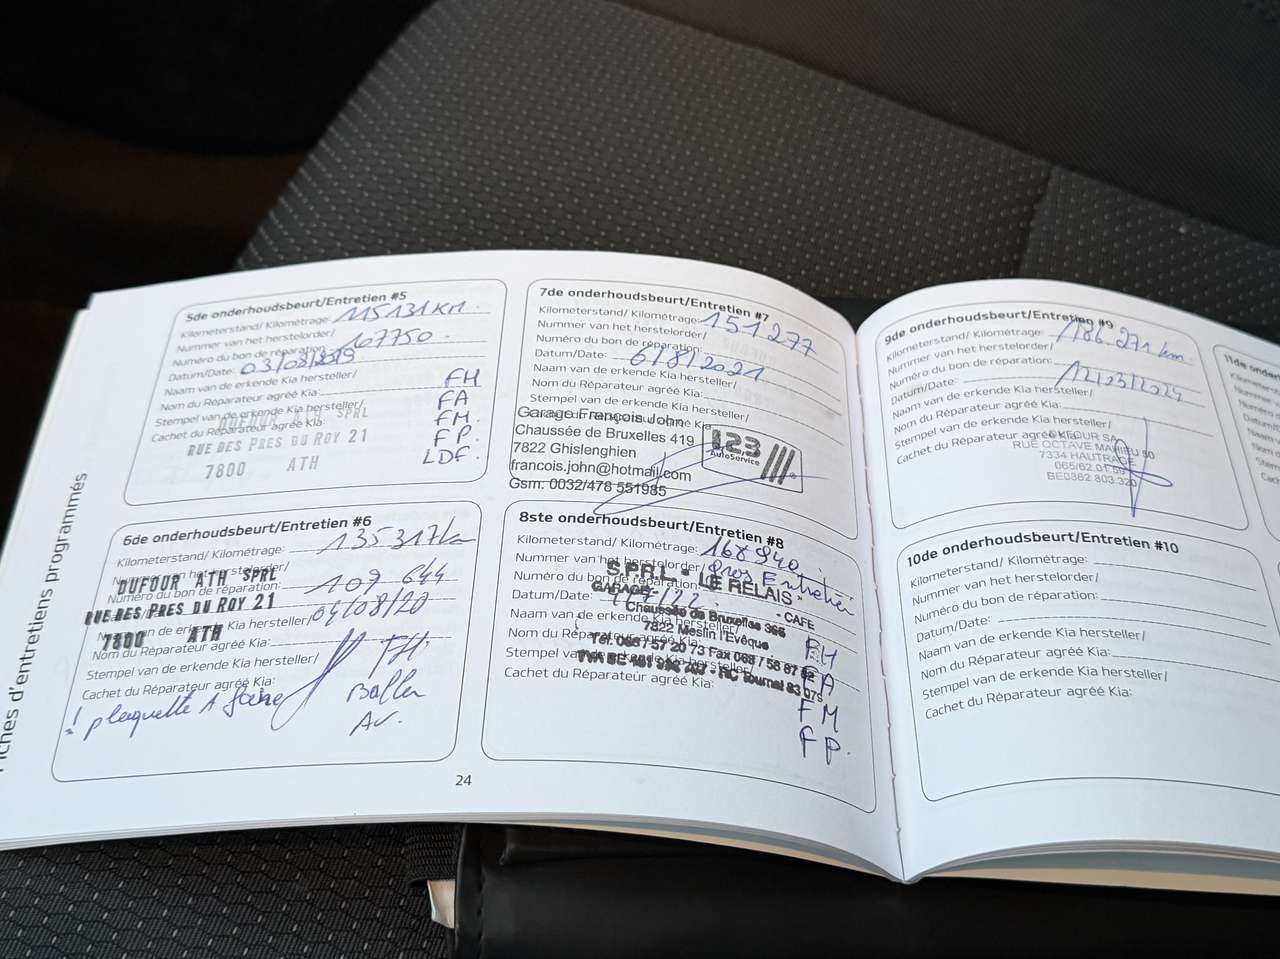 Fiches d'entretiens programmés
5de onderhoudsbeurt/Entretien #5
Kilometerstand/ Kilométrage: 115131 KM.
Nummer van het herstelorder/
Numéro du bon de réparation: 167750
Datum/Date: 03/08/2019
Naam van de erkende Kia hersteller/
Nom du Réparateur agréé Kia:
Stempel van de erkende Kia hersteller/
Cachet du Réparateur agréé Kia:
DUFOUR ATH SPRL
RUE DES PRES DU ROY 21
7800 ATH
FH
FA
FM.
FP.
LDF.
6de onderhoudsbeurt/Entretien #6
Kilometerstand/ Kilométrage: 135317km
Nummer van het herstelorder/
Numéro du bon de réparation: 107 644
Datum/Date: 04/08/20
Naam van de erkende Kia hersteller/
Nom du Réparateur agréé Kia:
Stempel van de erkende Kia hersteller/
Cachet du Réparateur agréé Kia:
DUFOUR ATH SPRL
RUE DES PRES DU ROY 21
7800 ATH
FH.
Av.
! plaquette A faire
7de onderhoudsbeurt/Entretien #7
Kilometerstand/ Kilométrage: 151277
Nummer van het herstelorder/
Numéro du bon de réparation:
Datum/Date: 6/8/2021
Naam van de erkende Kia hersteller/
Nom du Réparateur agréé Kia:
Stempel van de erkende Kia hersteller/
Cachet du Réparateur agréé Kia:
Garage François John
Chaussée de Bruxelles 419
7822 Ghislenghien
francois.john@hotmail.com
Gsm: 0032/478 551985
123
AutoService
8ste onderhoudsbeurt/Entretien #8
Kilometerstand/ Kilométrage: 168940.
Nummer van het herstelorder/ Gros Entretien
Numéro du bon de réparation:
Datum/Date:
Naam van de erkende Kia hersteller/
Nom du Réparateur agréé Kia:
Stempel van de erkende Kia hersteller/
Cachet du Réparateur agréé Kia:
S.P.R.L. LE RELAIS
GARAGE - CAFE
Chaussée de Bruxelles 365
7822 Meslin l'Evêque
FH
FA
FM
FP.
24
9de onderhoudsbeurt/Entretien #9
Kilometerstand/ Kilométrage: 186.271 km.
Nummer van het herstelorder/
Numéro du bon de réparation:
Datum/Date: 12/03/2024
Naam van de erkende Kia hersteller/
Nom du Réparateur agréé Kia:
Stempel van de erkende Kia hersteller/
Cachet du Réparateur agréé Kia:
DUFOUR SA
RUE OCTAVE MAHIEU 90
7334 HAUTRAGE
BE0362.803.320
10de onderhoudsbeurt/Entretien #10
Kilometerstand/ Kilométrage:
Nummer van het herstelorder/
Numéro du bon de réparation:
Datum/Date:
Naam van de erkende Kia hersteller/
Nom du Réparateur agréé Kia:
Stempel van de erkende Kia hersteller/
Cachet du Réparateur agréé Kia: